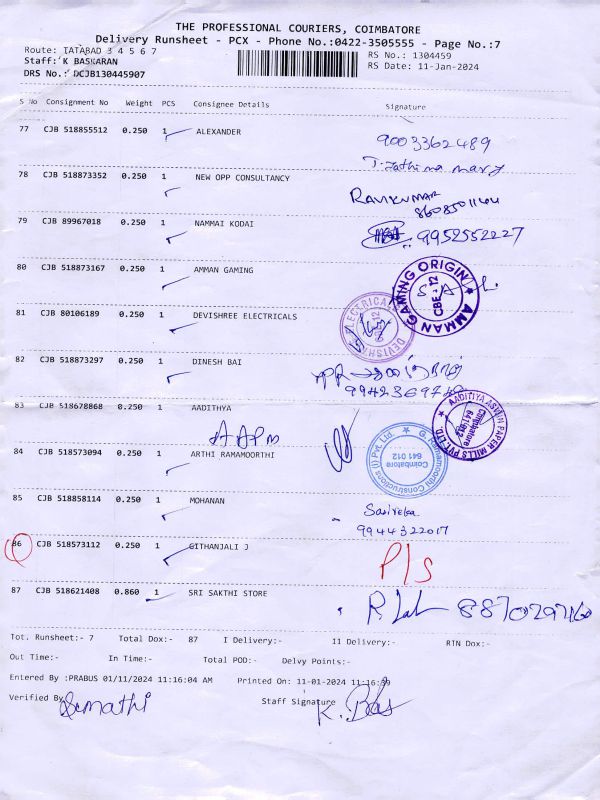 THE PROFESSIONAL COURIERS, COIMBATORE
Delivery Runsheet - PCX - Phone No.:0422-3505555 - Page No.:7
Route: TATABAD 3 4 5 6 7
RS No.: 1304459
Staff: K BASKARAN
RS Date: 11-Jan-2024
DRS No.: DCJB130445907
S No Consignment No Weight PCS Consignee Details Signature
77 CJB 518855512 0.250 1 ALEXANDER
9003362489
78 CJB 518873352 0.250 1 NEW OPP CONSULTANCY
RAVIKUMAR
8608501144
79 CJB 89967018 0.250 1 NAMMAI KODAI
9952552227
80 CJB 518873167 0.250 1 AMMAN GAMING
AMMAN GAMING ORIGIN
CBE-12
81 CJB 80106189 0.250 1 DEVISHREE ELECTRICALS
82 CJB 518873297 0.250 1 DINESH BAI
83 CJB 518678868 0.250 1 AADITHYA
AAPM
AADITIYA ASWIN PAPER MILLS PVT. LTD.
84 CJB 518573094 0.250 1 ARTHI RAMAMOORTHI
G. Ramamoorthi Constructions (I) Pvt. Ltd.
Coimbatore
641 012
85 CJB 518858114 0.250 1 MOHANAN
9944322017
86 CJB 518573112 0.250 1 GITHANJALI J
P/S
87 CJB 518621408 0.860 1 SRI SAKTHI STORE
Tot. Runsheet:- 7 Total Dox:- 87 I Delivery:- II Delivery:- RTN Dox:-
Out Time:- In Time:- Total POD:- Delvy Points:-
Entered By :PRABUS 01/11/2024 11:16:04 AM Printed On: 11-01-2024 11:16:
Verified By
Staff Signature
K. Bas